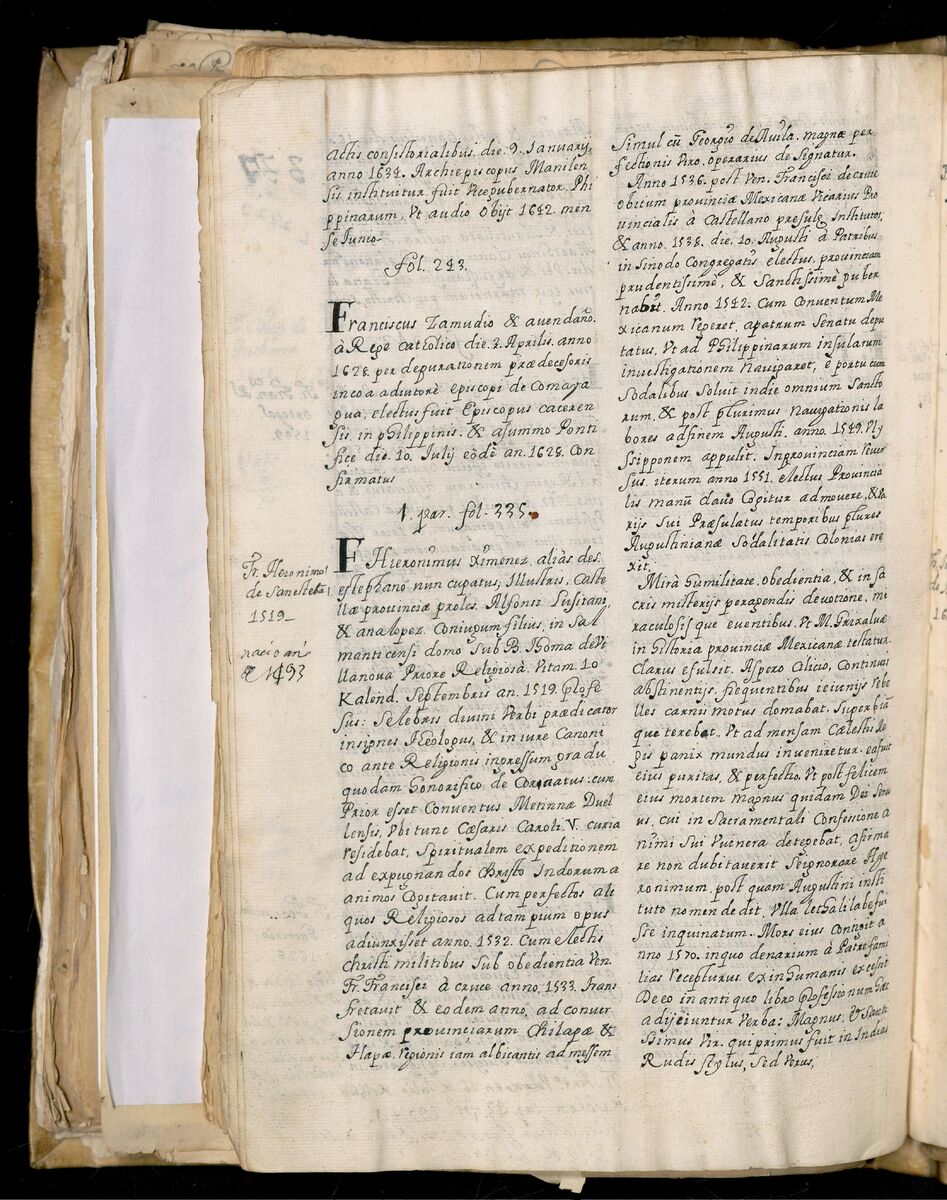 Actis consistorialibus. die. 9. Ianuarij,
anno 1634. Archiepiscopus Manilen
sis instituitur. fuit Vicegubernator. Phi
ppinarum, Vt audio obijt 1642. men
se Iunio-
fol. 243.
Franciscus Zamudio & avendaño.
à Rege catholico die. 2. Aprilis. anno
1628. per depurationem prædecesoris
in coadiutorē episcopi de Comaya
gua, electus fuit Episcopus caceren
sis. in philippinis. & asummo Ponti
fice die. 10. Julij eōdē an. 1628. Con
firmatus
1. par. fol. 335.
Fr. Heronimo
de Sanesteba
1519_
nacio año
de 1493
F Hieronimus Ximenez, aliàs de S.
estephano nun cupatus, Illustris, Caste
llæ provinciæ proles. Alfonsi Lusitani
& ana lopez. Coniugum filius, in Sal
manticensi domo Sub B. Thoma de Vi
llanova Priore Religiosā. Vitam. 10
Kalend. Septembris an. 1519. profe
sus: Selebris divini Verbi prædicator
insignes theologus, & in iure Canoni
co ante Religionis ingressum gradu
quodam honorifico de Cornatus: cum
Prior esset Conventus Metinnæ Duel
lensis, Vbi tunc Cæsaris Caroli. V. curia
residebat, Spiritualem expeditionem
ad expugnandos Christo Indorum a
animos Cogitavit. Cum perfectos ali
quos Religiosos ad tam pium opus
adiunxisset anno. 1532. Cum electis
christi militibus Sub obedientia Ven.
Fr. Francisci à cruce anno. 1533. trans
fretavit & eodem anno, ad conver
sionem provinciarum Chilapæ &
tlapæ, regionis iám albicantis ad messem
Simul cū Georgio de Avila. magnæ per
fectionis Viro. operarius de Signatur.
Anno 1536. post Ven. Francisci de cruce
obitum provinciæ Mexicanæ Vicarius Pro
vincialis à Castellano presule Institutos,
& anno. 1538. die. 10. Augusti à Patribus
in sinodo Congregatis electus, provinciam
prudentissimè, & Sanctissimè guber
nabit. Anno 1542. Cum Conventum Me
xicanum Regeret, apatrum Senatu depu
tatus, Vt ad Philippinarum insularum
investigationem Navigaret, e portu cum
Sodalibus Soluit in die omnium Sancto
rum, & post plurimus navigationis la
bores ad finem Augusti. anno. 1549. Vly
ssipponem appulit. In provinciam Rever
sus. iterum anno 1551. electus Provincia
lis manū clavo Cogitur admovere, & va
rijs Sui Præsulatus temporibus plures
Augustinianæ Sodalitatis Colonias ere
xit.
Mirà humilitate, obedientia, & in sa
cris misterijs peragendis devotione, mi
raculosis que eventibus. Vt M. Grixalvæ
in historia provinciæ Mexicanæ testatur.
Clarus efulsit. Aspero Cilicio, Continuis
abstinentijs, frequentibus ieiunijs rebe
lles carnis motus domabat. Superbiā
que terebat. Vt ad mensam Cælestis Re
gis panix mundus inveniretur. ea fuit
eius puritas, & perfectio. Vt post felicem
eius mortem magnus quidam Dei Serv
us, cui in Sacramentali Confesione a
nimi Sui Vulnera detegebat, afirma
re non dubitaverit Se ignorare Hye
ronimum, post quam Augustini insti
tuto nomen dedit. Vlla lethali labe fui
sse inquinatum. Mors eius Contigit a
nno 1570. in quo denarium à Patre fami
lias recepturus. ex inhumanis excessit
De eo in antiquo libro professionum hæc
adijciuntur Verba: Magnus, & Sancti
ssimus Vir. qui primus fuit in Indias
Rudis stylus, Sed Verus,